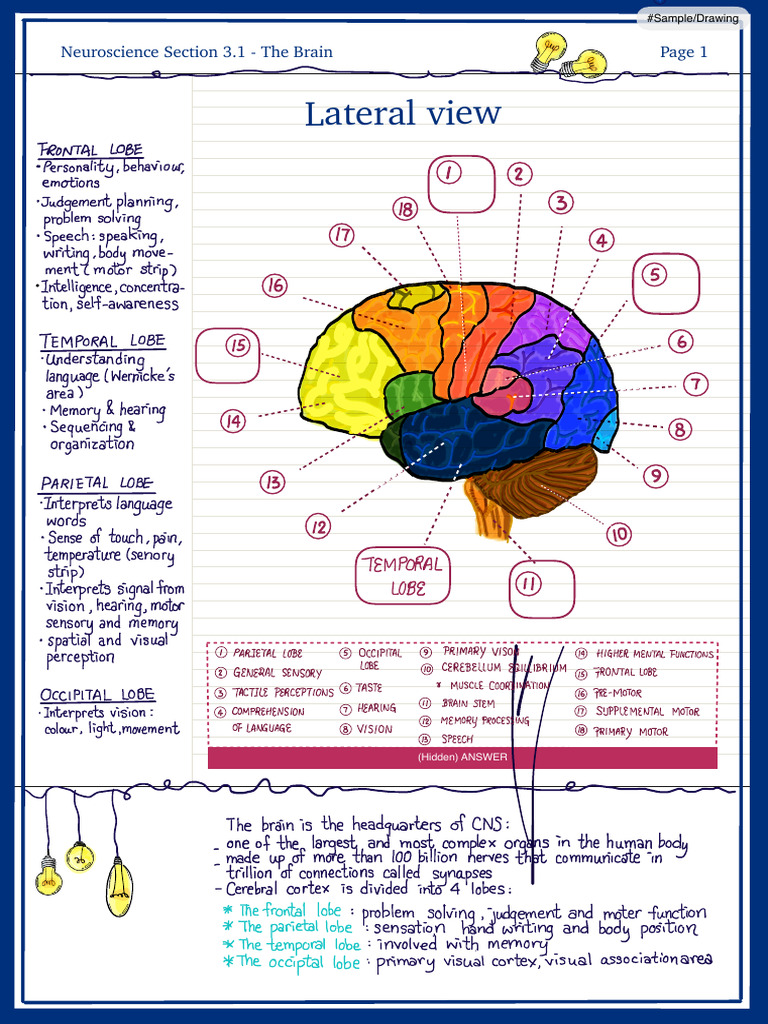 #Sample/Drawing
Neuroscience Section 3.1 - The Brain
Page 1
Lateral view
FRONTAL LOBE
·Personality, behaviour,
emotions
·Judgement planning,
problem solving
·Speech: speaking,
writing, body move-
ment (motor strip)
·Intelligence, concentra-
tion, self-awareness
TEMPORAL LOBE
·Understanding
language (Wernicke's
area)
· Memory & hearing
· Sequencing &
organization
PARIETAL LOBE
·Interprets language
words
· Sense of touch, pain,
temperature (senory
strip)
·Interprets signal from
vision, hearing, motor
sensory and memory
· spatial and visual
perception
OCCIPITAL LOBE
· Interprets vision:
colour, light, movement
1
2
3
4
5
6
7
8
9
10
11
TEMPORAL
LOBE
12
13
14
15
16
17
18
1 PARIETAL LOBE
2 GENERAL SENSORY
3 TACTILE PERCEPTIONS
4 COMPREHENSION
OF LANGUAGE
5 OCCIPITAL
LOBE
6 TASTE
7 HEARING
8 VISION
9 PRIMARY VISON
10 CEREBELLUM EQILIBRIUM
* MUSCLE COORDINATION
11 BRAIN STEM
12 MEMORY PROCESSING
13 SPEECH
14 HIGHER MENTAL FUNCTIONS
15 FRONTAL LOBE
16 PRE-MOTOR
17 SUPPLEMENTAL MOTOR
18 PRIMARY MOTOR
(Hidden) ANSWER
The brain is the headquarters of CNS:
- one of the largest and most complex organs in the human body
- made up of more than 100 billion nerves that communicate in
- trillion of connections called synapses
- Cerebral cortex is divided into 4 lobes:
* The frontal lobe : problem solving, judgement and moter function
* The parietal lobe : sensation hand writing and body position
* The temporal lobe : involved with memory
* The occiptal lobe : primary visual cortex, visual association area